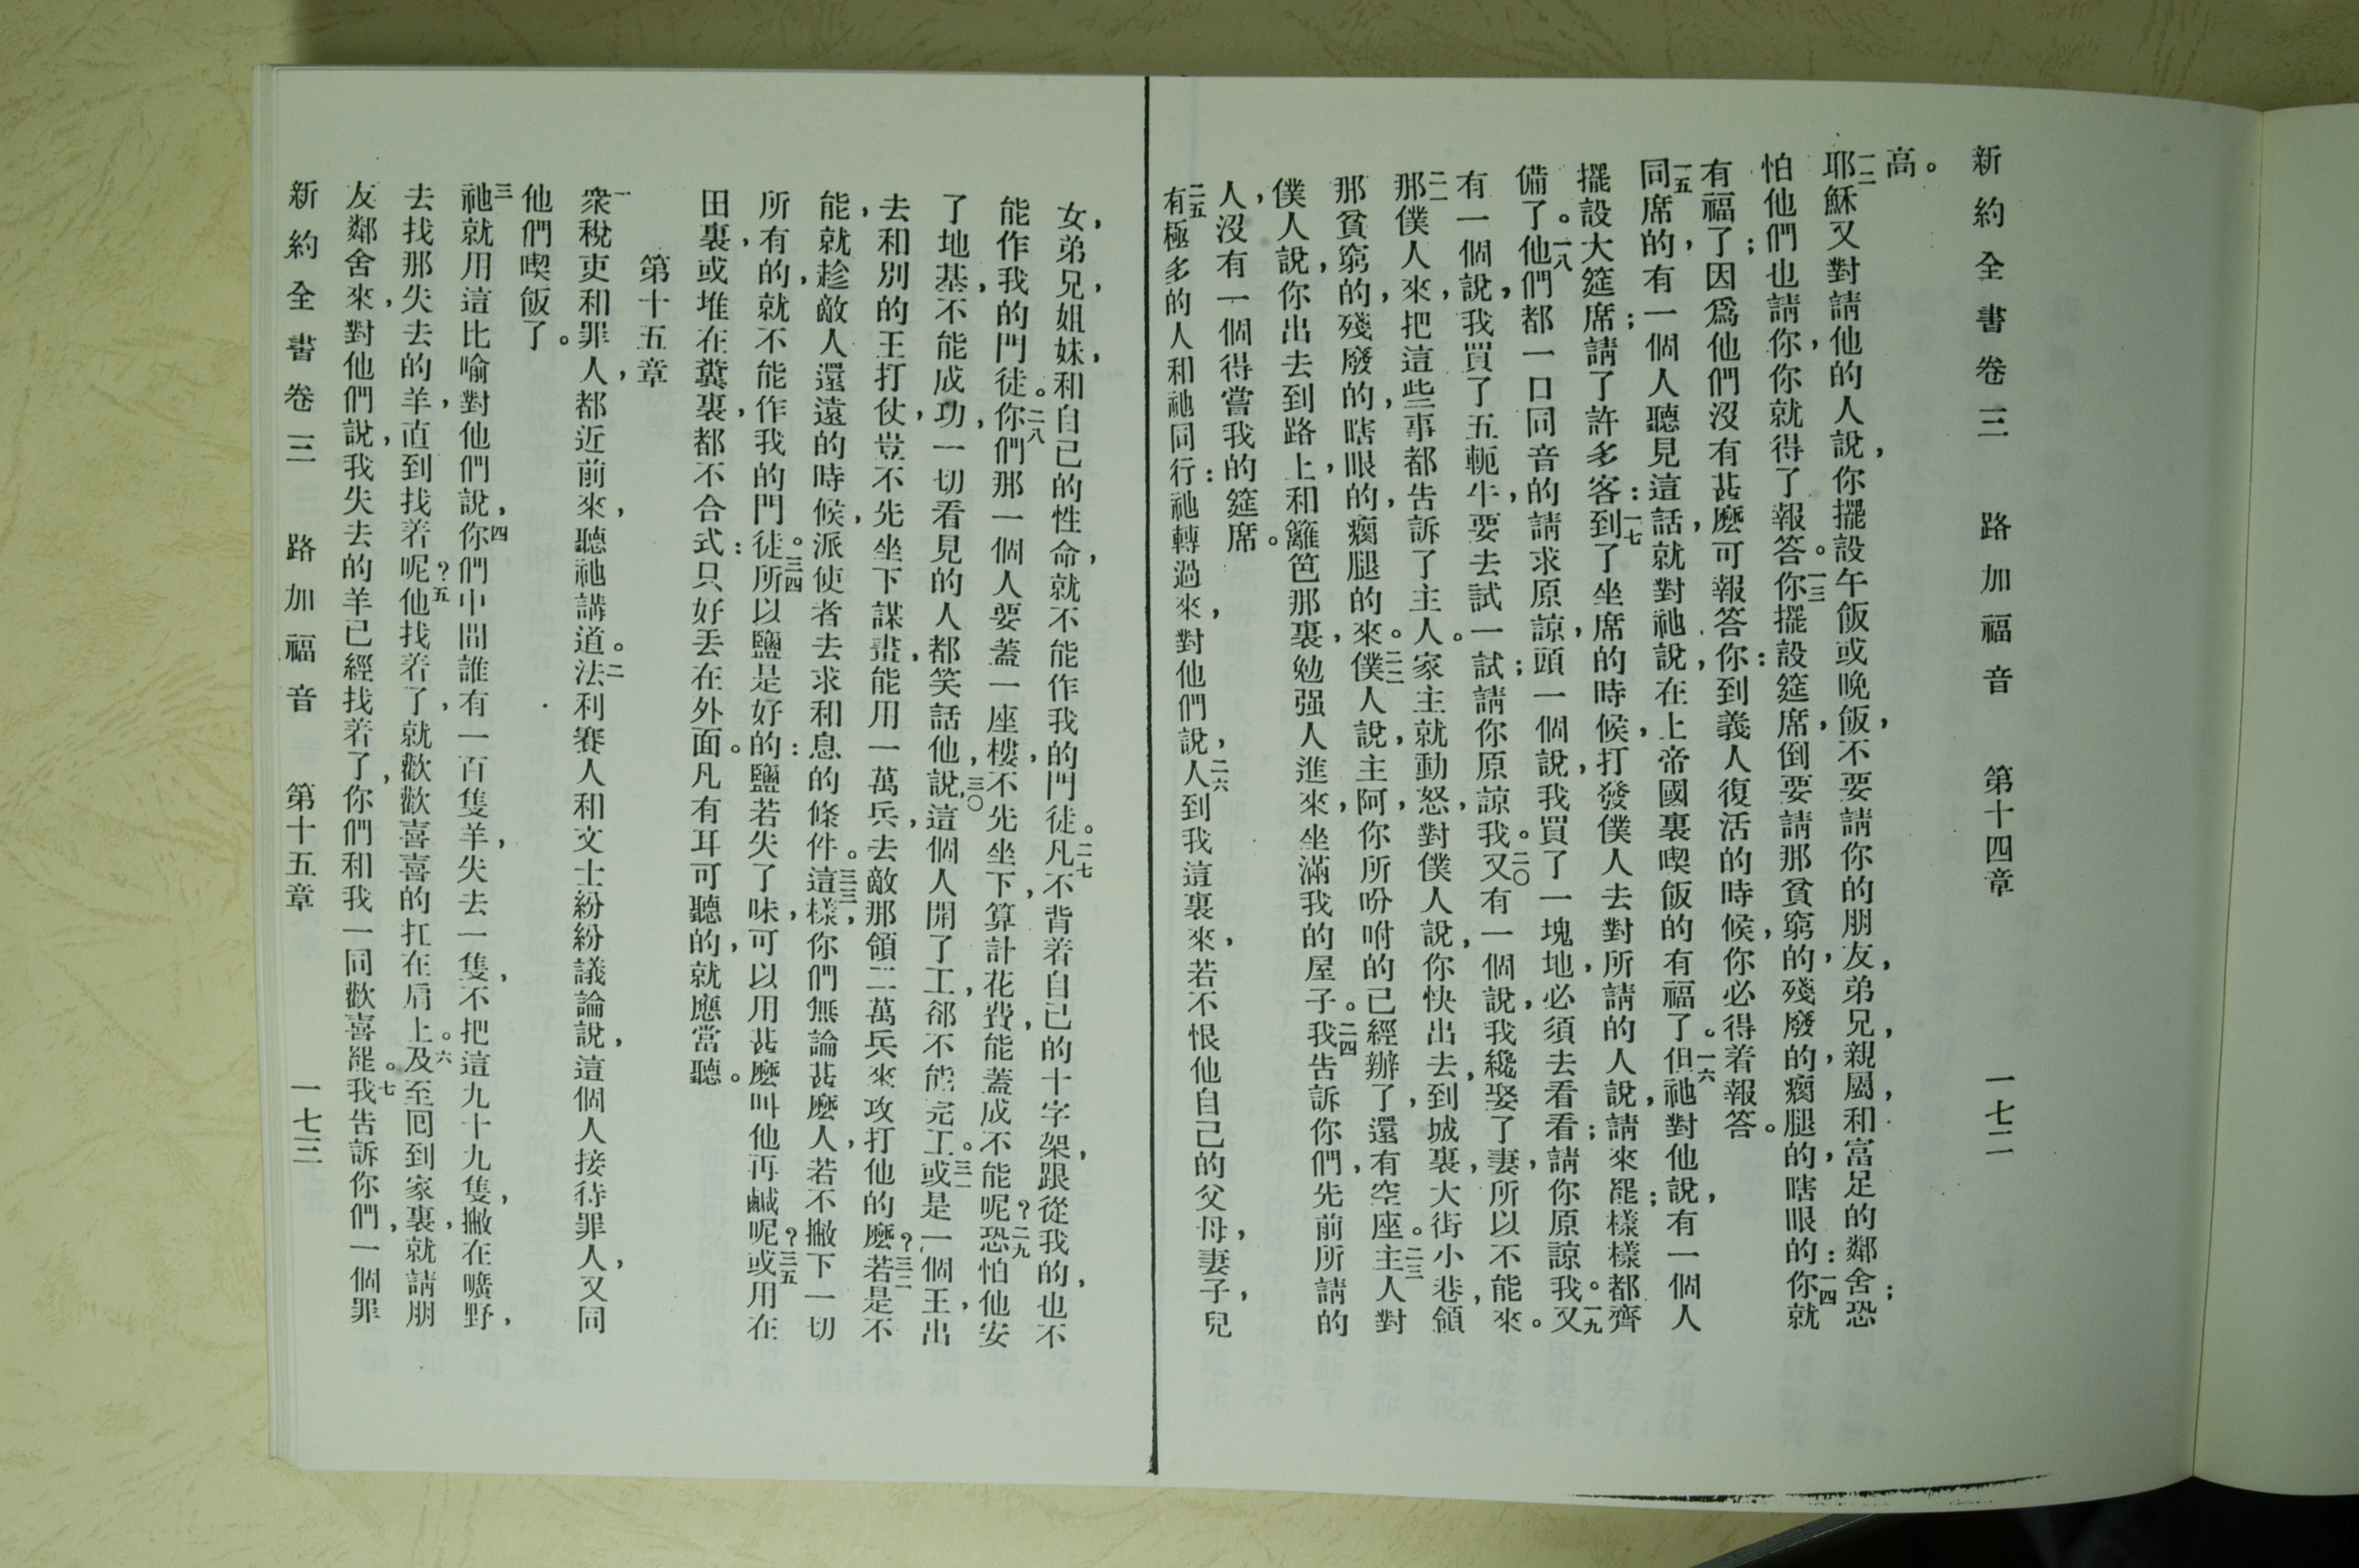 新約全書卷三　路加福音　第十四章　一七二
高。
一二耶穌又對請他的人說，你擺設午飯或晚飯，不要請你的朋友，弟兄，親屬，和富足的鄰舍；恐
怕他們也請你，你就得了報答。一三你擺設筵席，倒要請那貧窮的，殘廢的，瘸腿的，瞎眼的：一四你就
有福了；因爲他們沒有甚麼可報答你：到義人復活的時候，你必得着報答。
一五同席的，有一個人聽見這話，就對祂說，在上帝國裏喫飯的有福了。一六但祂對他說，有一個人
擺設大筵席；請了許多客：一七到了坐席的時候，打發僕人去對所請的人說，請來罷；樣樣都齊
備了。一八他們都一口同音的請求原諒，頭一個說，我買了一塊地，必須去看看；請你原諒我。一九又
有一個說，我買了五軛牛，要去試一試；請你原諒我。二〇又有一個說，我纔娶了妻，所以不能來。
二一那僕人來，把這些事都告訴了主人。家主就動怒，對僕人說，你快出去，到城裏，大街小巷，領
那貧窮的，殘廢的，瞎眼的，瘸腿的來。二二僕人說，主阿，你所吩咐的已經辦了，還有空座。二三主人對
僕人說，你出去到路上，和籬笆那裏，勉强人進來，坐滿我的屋子。二四我告訴你們，先前所請的
人，沒有一個得嘗我的筵席。
二五有極多的人和祂同行：祂轉過來，對他們說，二六人到我這裏來，若不恨他自己的父母，妻子，兒
女，弟兄，姐妹，和自己的性命，就不能作我的門徒。二七凡不背着自己的十字架，跟從我的，也不
能作我的門徒。二八你們那一個人要蓋一座樓，不先坐下，算計花費，能蓋成不能呢？二九恐怕他安
了地基，不能成功，一切看見的人都笑話他，說，三〇這個人開了工，卻不能完工。三一或是一個王，出
去和別的王打仗，豈不先坐下謀畫，能用一萬兵，去敵那領二萬兵來攻打他的麼？三二若是不
能，就趁敵人還遠的時候，派使者去求和息的條件。三三這樣，你們無論甚麼人，若不撇下一切
所有的，就不能作我的門徒。三四所以鹽是好的：鹽若失了味，可以用甚麼叫他再鹹呢？三五或用在
田裏，或堆在糞裏，都不合式：只好丟在外面。凡有耳可聽的，就應當聽。
第十五章
一衆稅吏和罪人，都近前來，聽祂講道。二法利賽人和文士紛紛議論說，這個人接待罪人，又同
他們喫飯了。
三祂就用這比喻對他們說，四你們中間誰有一百隻羊，失去一隻，不把這九十九隻，撇在曠野，
去找那失去的羊，直到找着呢？五他找着了，就歡歡喜喜的扛在肩上。六及至回到家裏，就請朋
友鄰舍來，對他們說，我失去的羊已經找着了，你們和我一同歡喜罷。七我告訴你們，一個罪
新約全書卷三　路加福音　第十五章　一七三